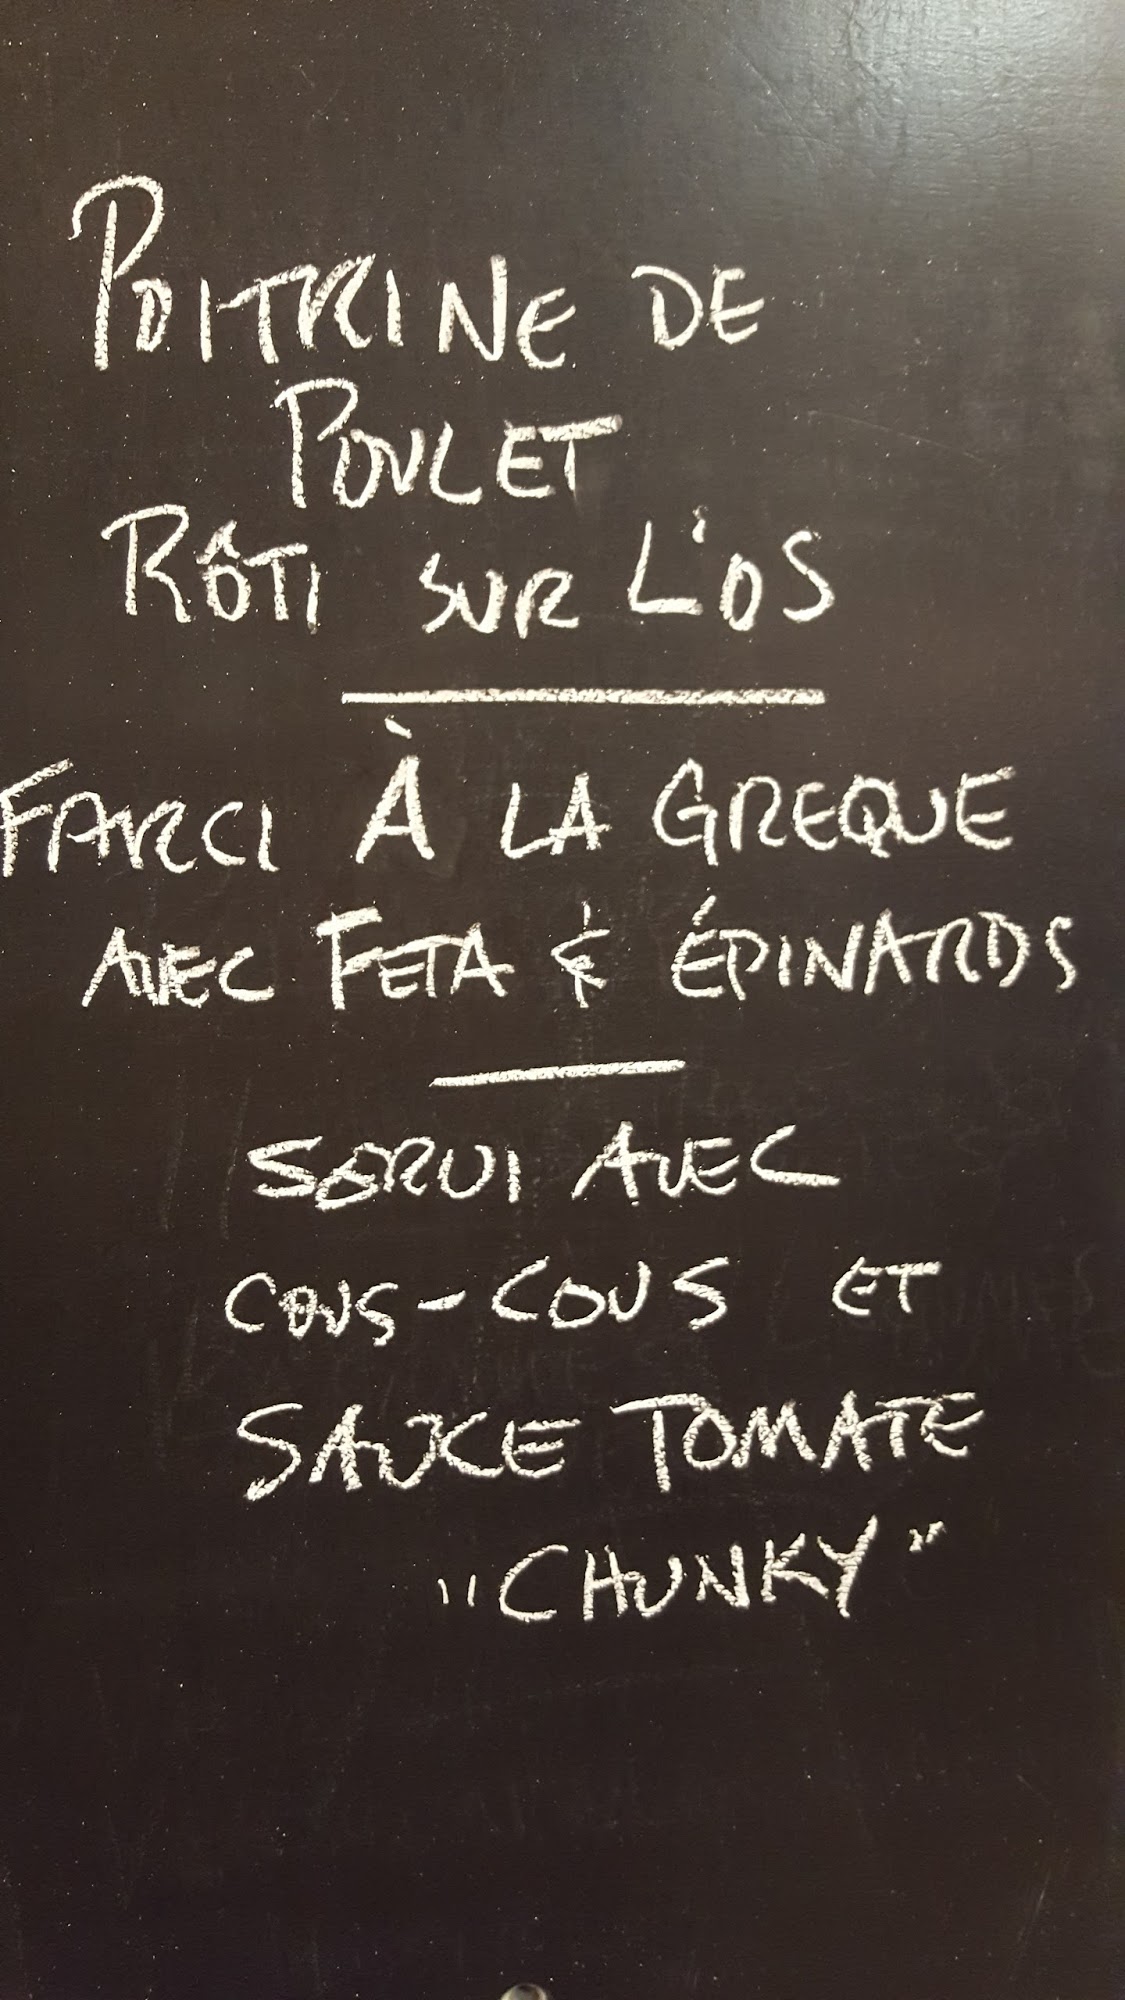 POITRINE DE
POULET
RÔTI SUR L'OS
FARCI À LA GREQUE
AVEC FETA & ÉPINARDS
SERVI AVEC
COUS-COUS ET
SAUCE TOMATE
"CHUNKY"